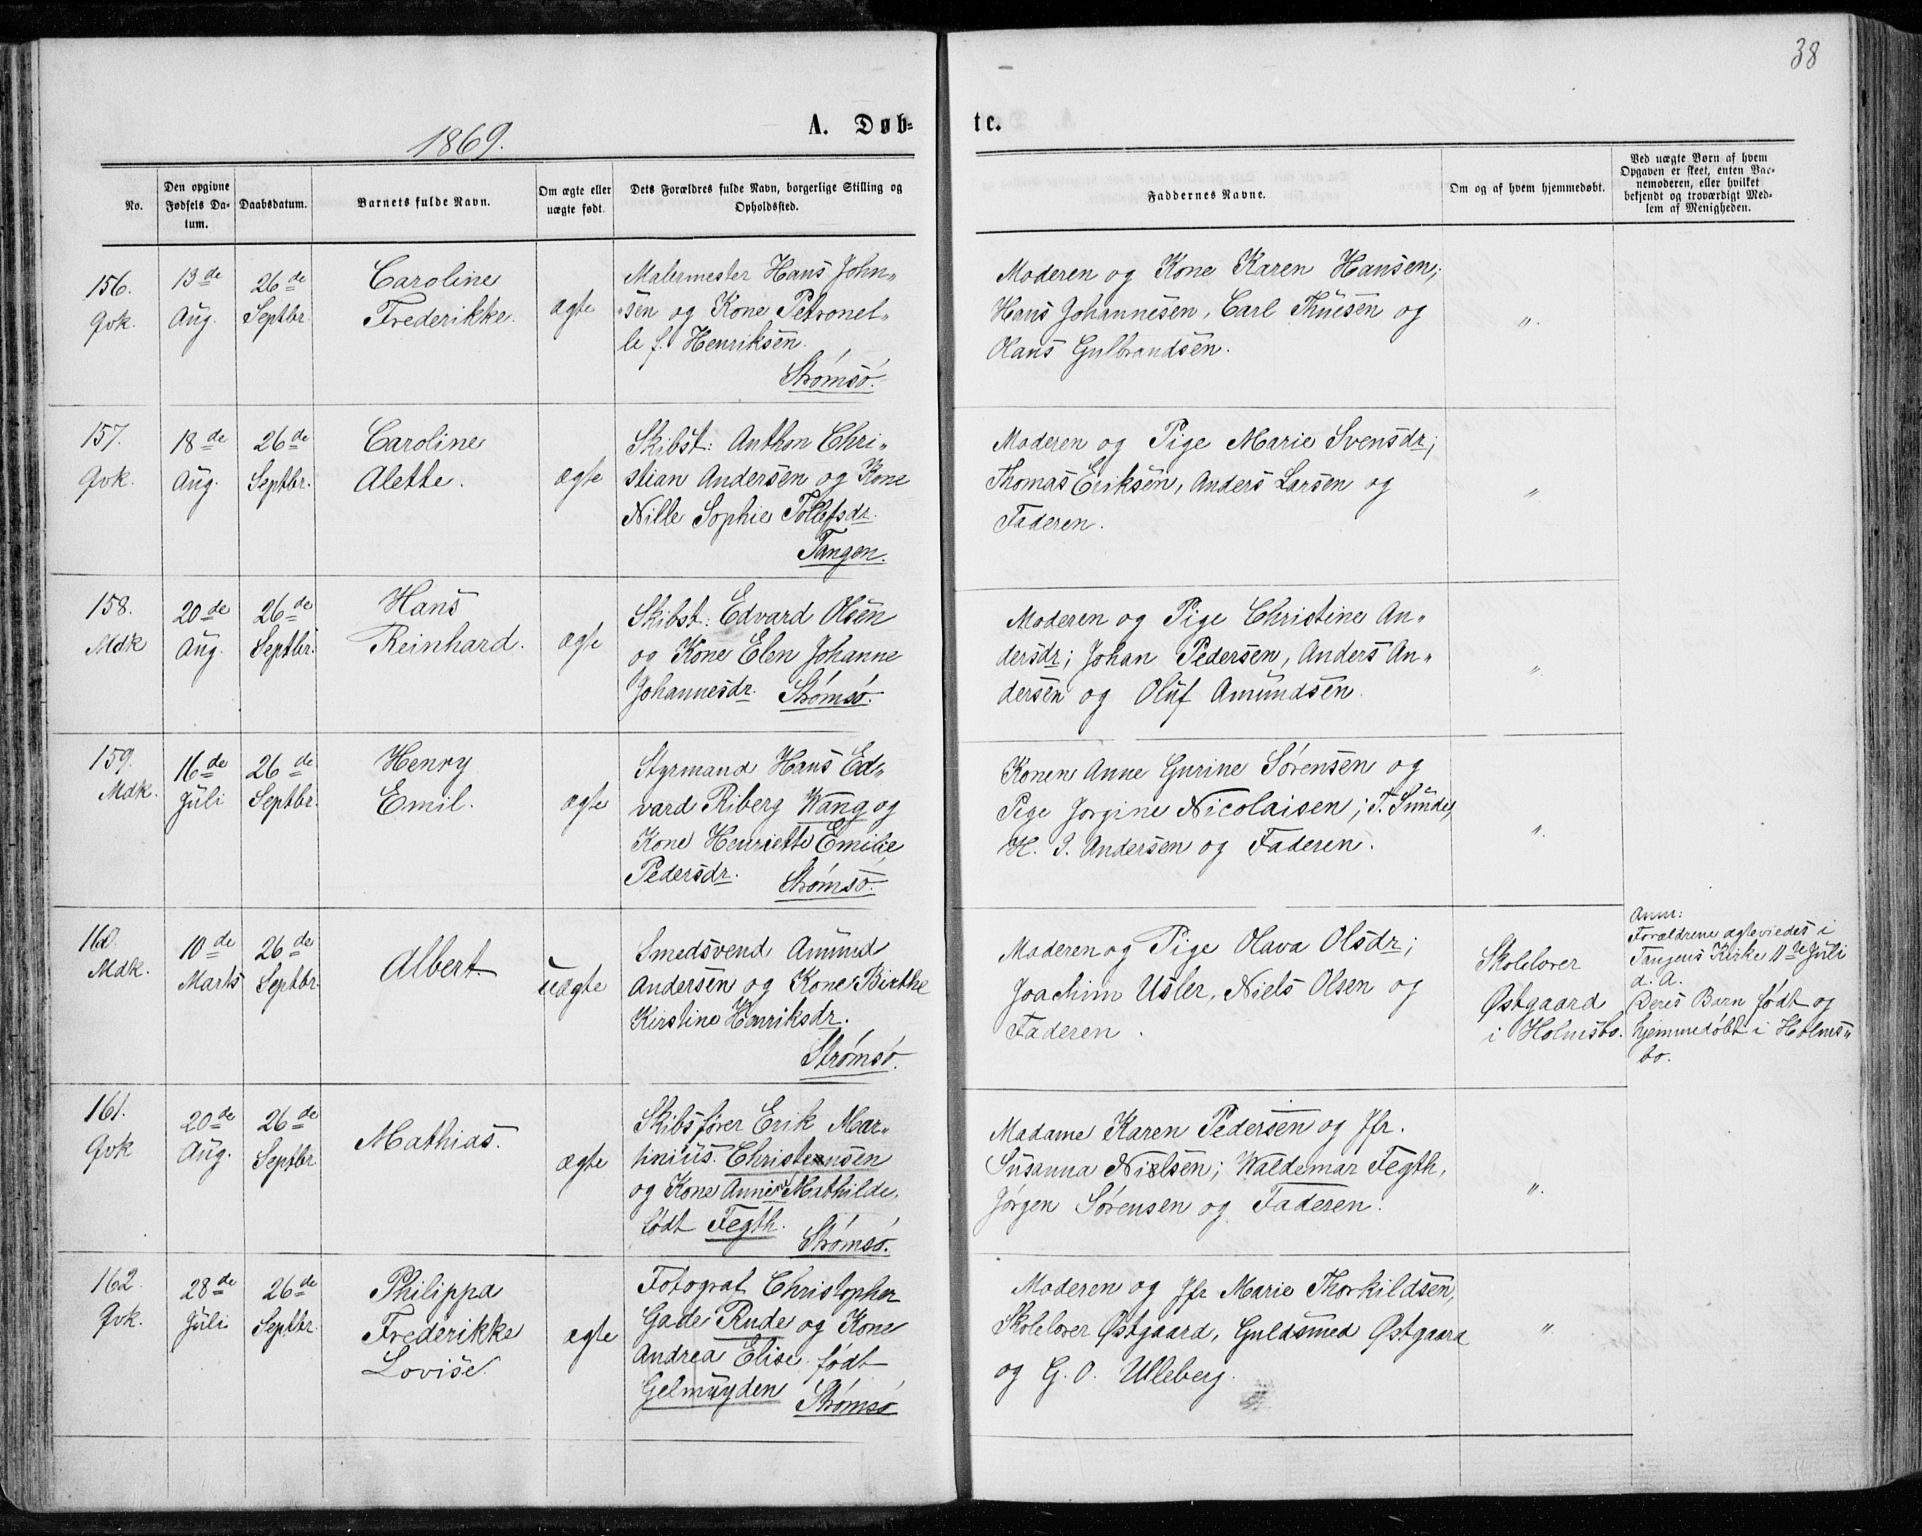 38
1869.
A. Døb-
te.
No.
Den opgivne
Fødsels Da-
tum.
Daabsdatum.
Barnets fulde Navn.
Om ægte eller
uægte født.
Dets Forældres fulde Navn, borgerlige Stilling og
Opholdssted.
Faddernes Navne.
Om og af hvem hjemmedøbt.
Ved uægte Børn af hvem
Opgaven er skeet, enten Bar-
nemoderen, eller hvilket
bekjendt og troværdigt Med-
lem af Menigheden.
156.
Qvk.
13de
Aug.
26de
Septbr.
Caroline
Frederikke.
ægte
Malermester Hans John-
sen og Kone Petronel-
le f. Henriksen.
Strømsø.
Moderen og Kone Karen Hansen;
Hans Johannesen, Carl Thuesen og
Hans Gulbrandsen.
"
157.
Qvk.
18de
Aug.
26de
Septbr.
Caroline
Alette.
ægte
Skibst: Anthon Chri-
stian Andersen og Kone
Nille Sophie Tollefsdr.
Tangen.
Moderen og Pige Marie Svensdr;
Thomas Eriksen, Anders Larsen og
Faderen.
"
158.
Mdk
20de
Aug.
26de
Septbr.
Hans
Reinhard.
ægte
Skibst: Edvard Olsen
og Kone Elen Johanne
Johannesdr. Strømsø.
Moderen og Pige Christine An-
dersdr; Johan Pedersen, Anders An-
dersen og Oluf Amundsen.
"
159.
Mdk.
16de
Juli
26de
Septbr.
Henry
Emil.
ægte
Styrmand Hans Ed-
vard Riberg Wang og
Kone Henriette Emilie
Pedersdr. Strømsø.
Konen Anne Gurine Sørensen og
Pige Jørgine Nicolaisen; T. Sunde,
H. J. Andersen og Faderen.
"
160.
Mdk.
10de
Marts
26de
Septbr.
Albert
uægte
Smedsvend Amund
Andersen og Kone Birthe
Kirstine Henriksdr.
Strømsø.
Moderen og Pige Olava Olsdr;
Joachim Usler, Niels Olsen og
Faderen.
Skolelærer
Østgaard
i Holmsbo.
Anm:
Forældrene ægteviedes i
Tangens Kirke 11te Juli
d. A.
Deres Barn født og
hjemmedøbt i Holms-
bo.
161.
Qvk
20de
Aug.
26de
Septbr
Mathias.
ægte
Skibsfører Erik Mar-
tinius. Christensen
og Kone Anne Mathilde,
født Fegth. Strømsø.
Madame Karen Pedersen og Jfr.
Susanna Nielsen; Waldemar Fegth,
Jørgen Sørensen og Faderen.
"
162.
Qvk.
28de
Juli
26de
Septbr
Philippa
Frederikke
Lovise.
ægte
Fotograf Christopher
Gade Rude og Kone
Andrea Elise født
Gelmuyden Strømsø
Moderen og Jfr Marie Thorkildsen,
Skolelærer Østgaard, Guldsmed Østgaard
og G. O. Ulleberg.
"